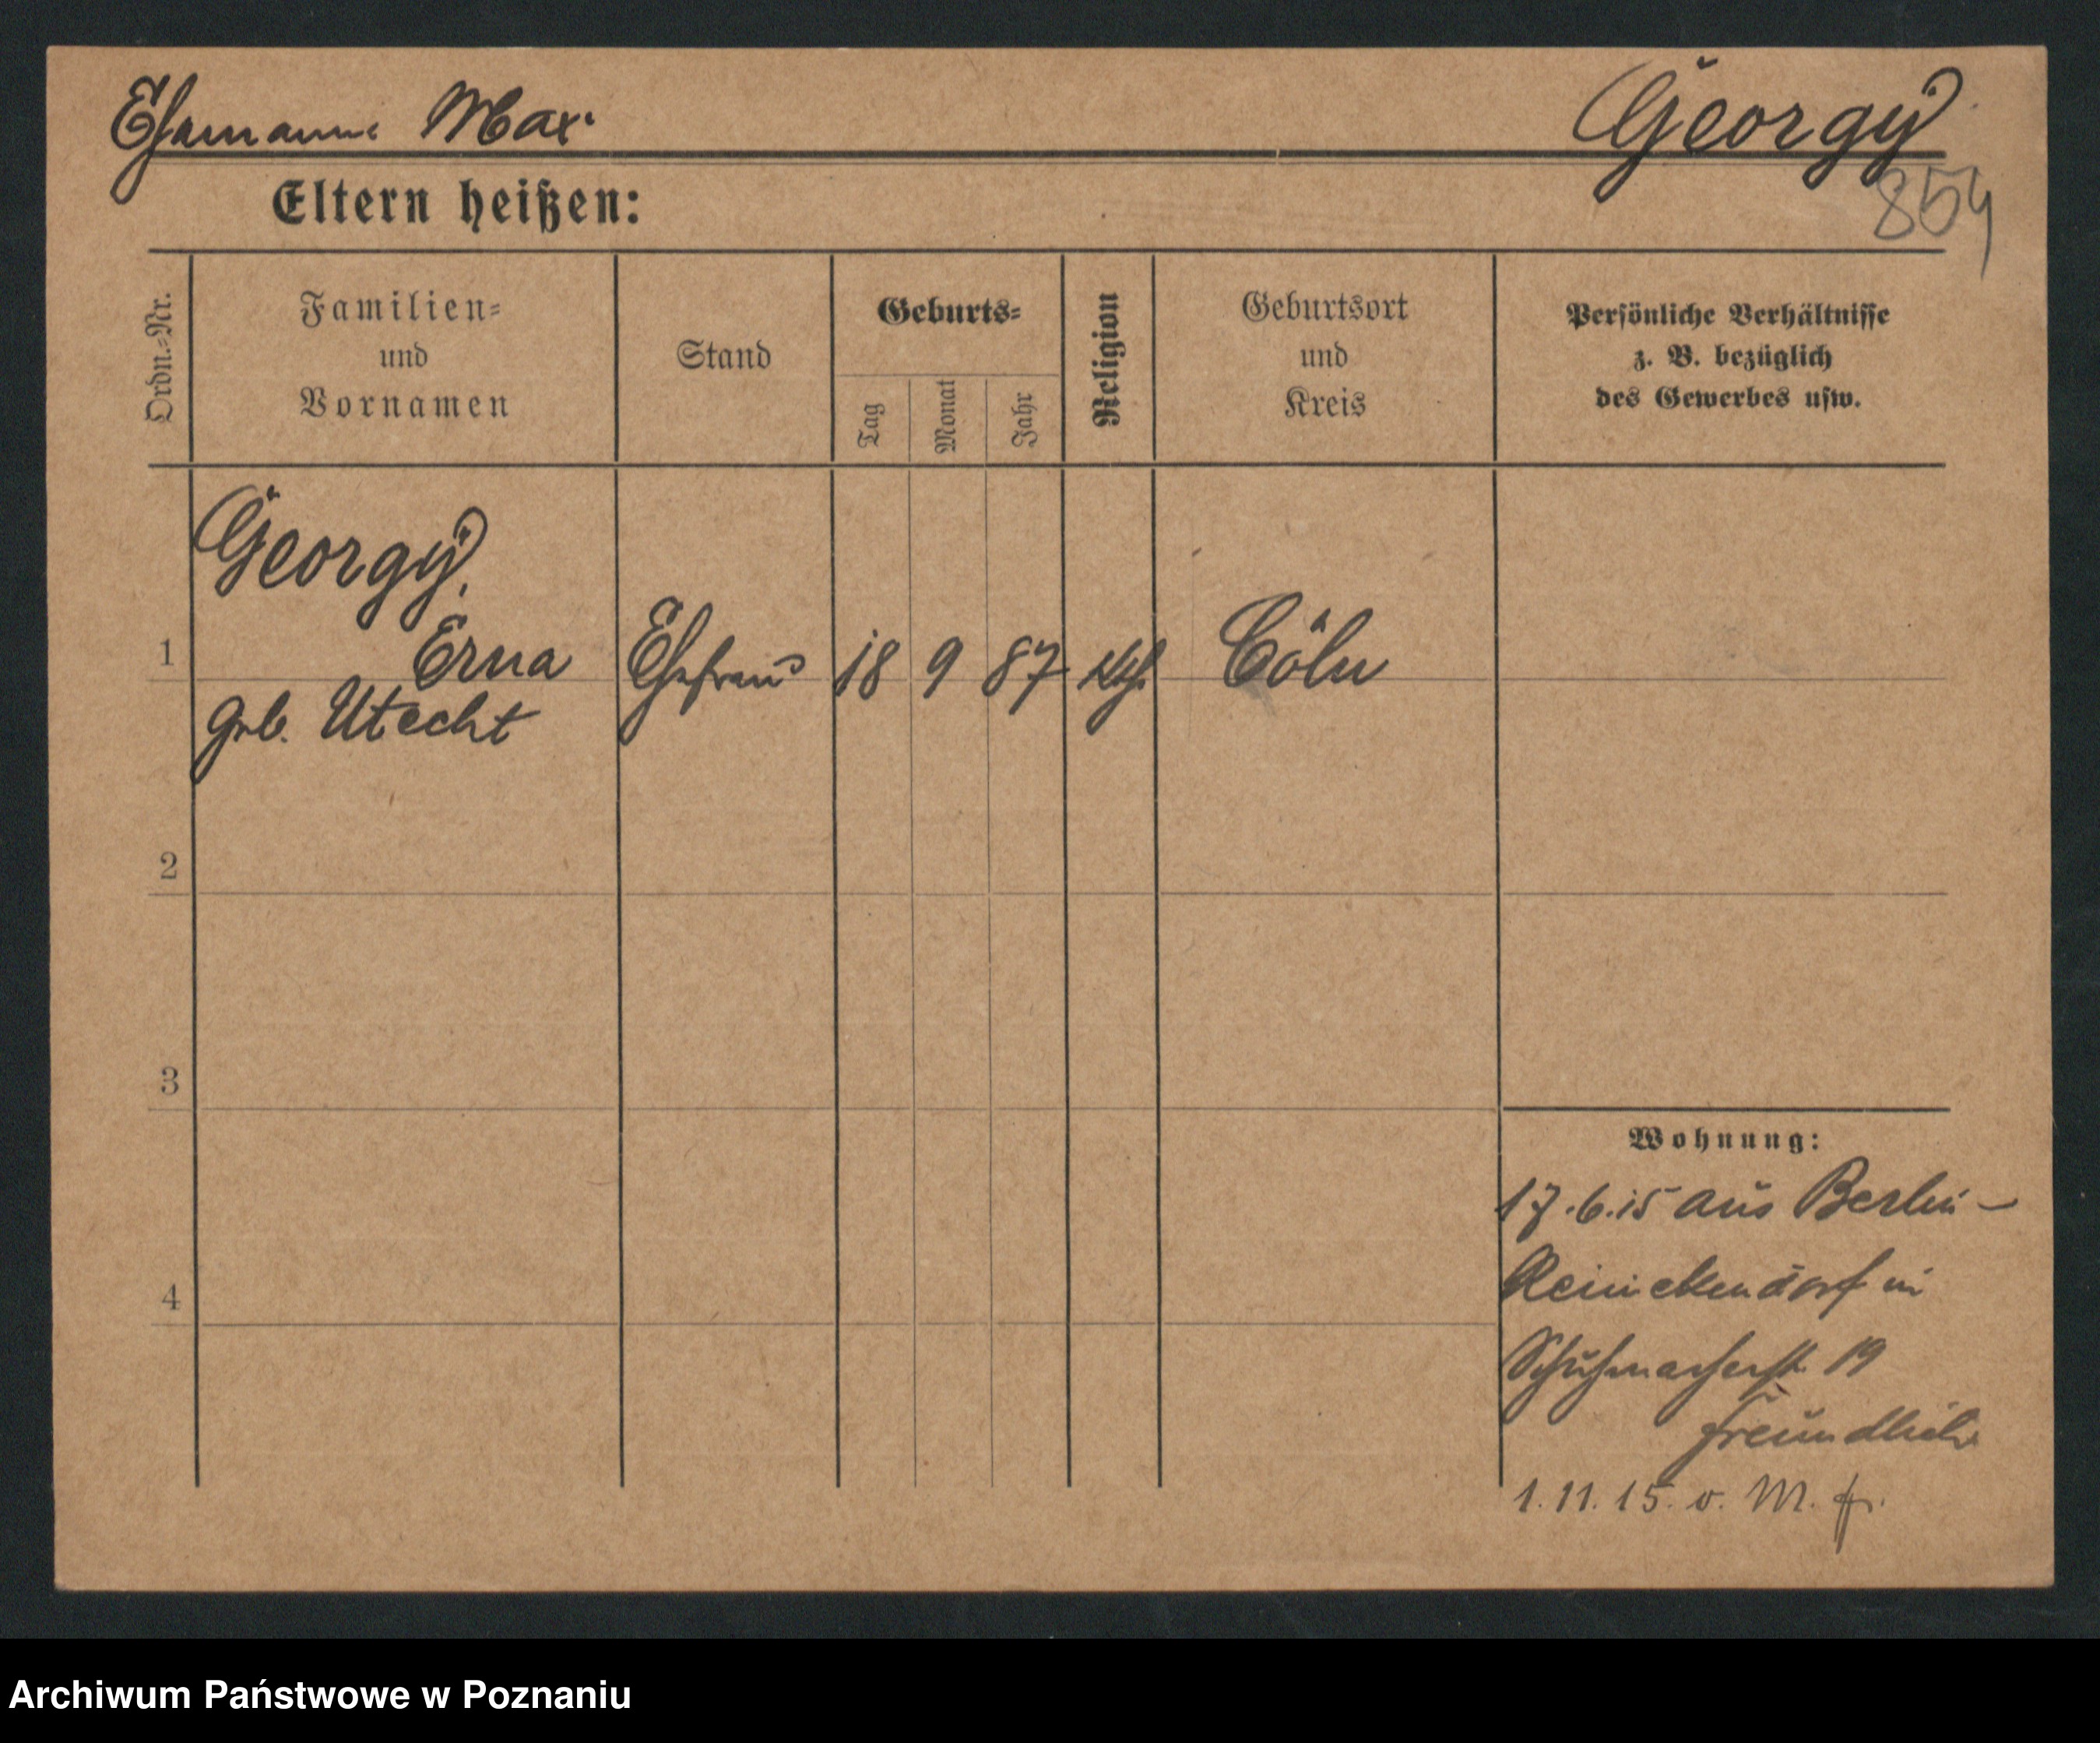 Ehemann Max Georgÿ
854
Eltern heißen:
Ordn.-Nr.
Familien-
und
Vornamen
Stand
Geburts-
Tag
Monat
Jahr
Religion
Geburtsort
und
Kreis
Persönliche Verhältnisse
z. B. bezüglich
des Gewerbes usw.
Georgÿ,
1 Erna Ehefrau 18 9 87 kth. Cöln
geb. Utecht
2
3
4
Wohnung:
17.6.15 aus Berlin-
Reinickendorf in
Schuhmacherst. 19
Freundlich
1.11.15. v. M.
Archiwum Państwowe w Poznaniu